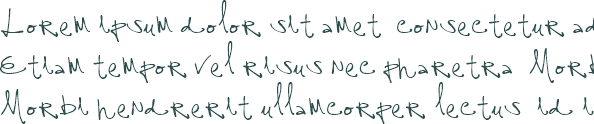 Lorem ipsum dolor sit amet consectetur ad
Etiam tempor vel risus nec pharetra Morb
Morbi hendrerit ullamcorper lectus id i